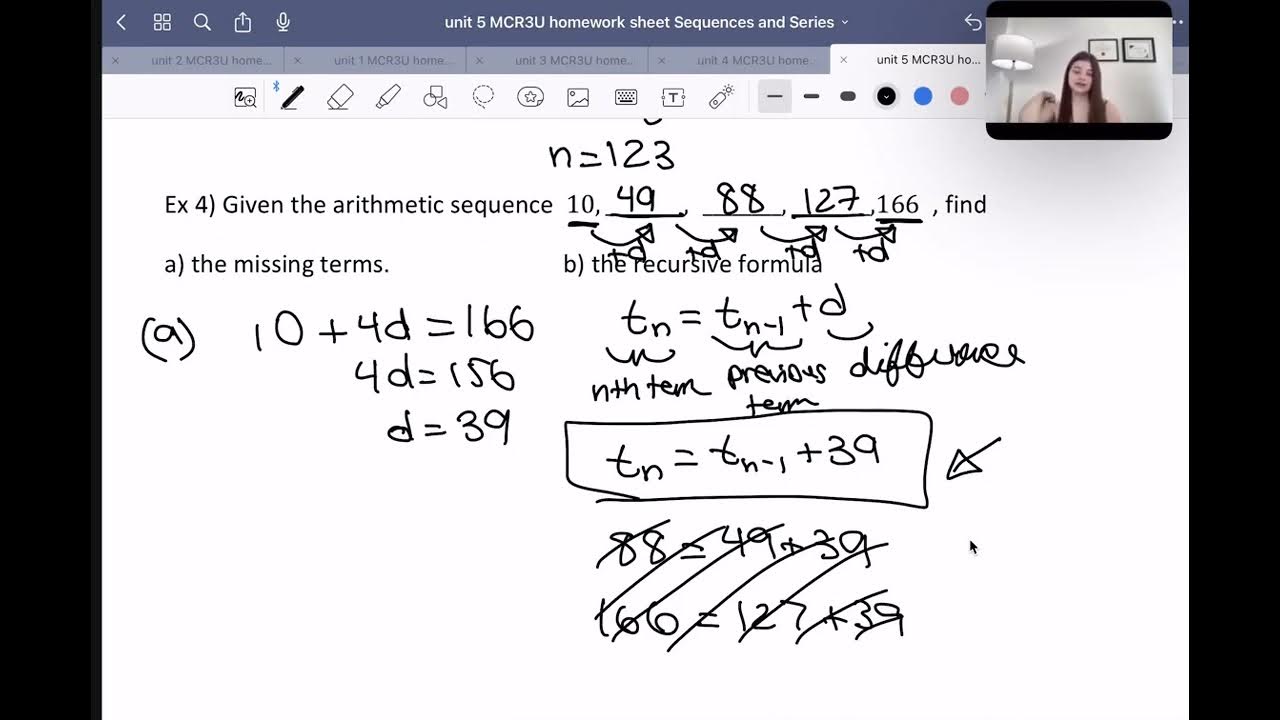 unit 5 MCR3U homework sheet Sequences and Series
unit 2 MCR3U home...
unit 1 MCR3U home...
unit 3 MCR3U home...
unit 4 MCR3U home...
unit 5 MCR3U ho...
n=123
Ex 4) Given the arithmetic sequence 10, 49, 88, 127, 166 , find
+d +d +d +d
a) the missing terms. b) the recursive formula
(a) 10+4d=166
4d=156
d=39
tn = tn-1 +d
nth term previous term difference
tn = tn-1 +39
88=49+39
166=127+39